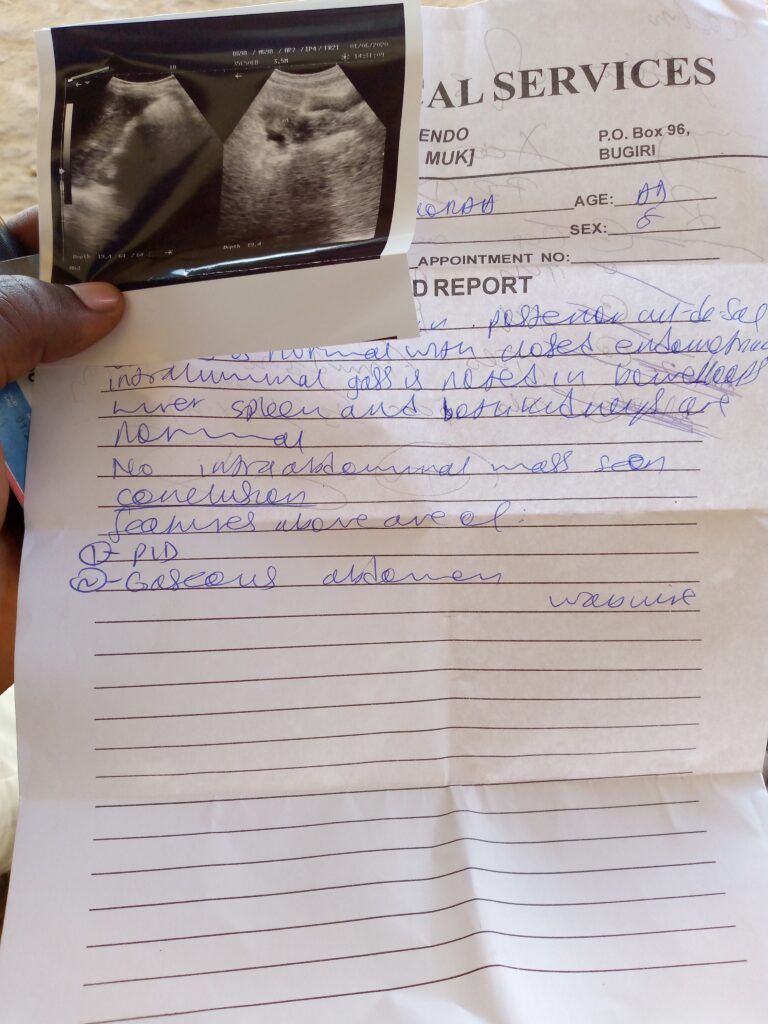 01/06/2020
3.5M
14:31:09
Depth 19.4
Depth 19.4
CAL SERVICES
ENDO
MUK]
P.O. Box 96,
BUGIRI
AGE:
SEX:
APPOINTMENT NO:
D REPORT
posterior cul-de-sac
is normal with closed
intraluminal gass is noted in bowelloops
Liver spleen and both kidneys are
normal
No intraabdominal mass seen
conclusion
features above are of:
1 - PID
2 - Gaseous abdomen